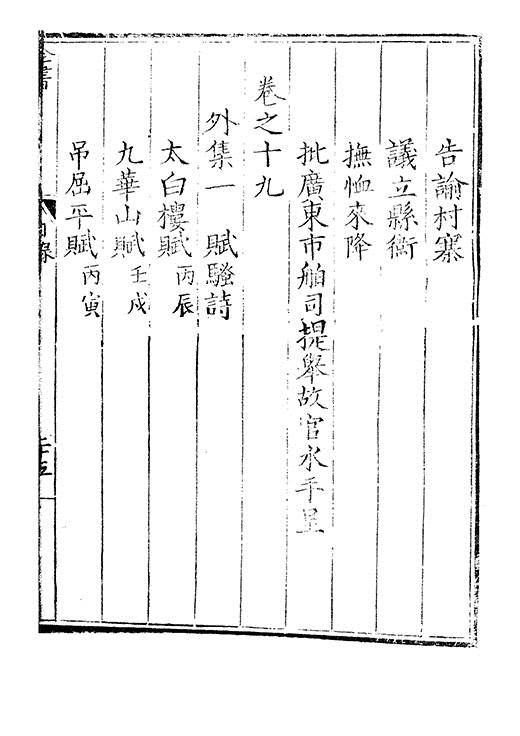 告諭村寨
議立縣衙
撫恤來降
批廣東市舶司提舉故官水手呈
卷之十九
外集一 賦騷詩
太白樓賦 丙辰
九華山賦 壬戌
吊屈平賦 丙寅
全書
目錄